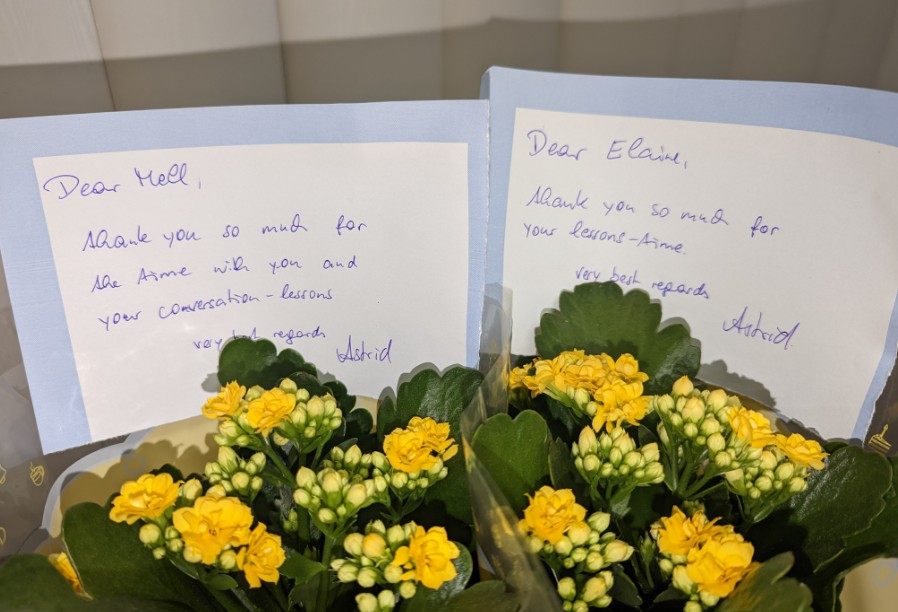 Dear Mell,
thank you so much for
the time with you and
your conversation-lessons
very best regards
Astrid
Dear Elaine,
thank you so much for
your lessons-time.
very best regards
Astrid.